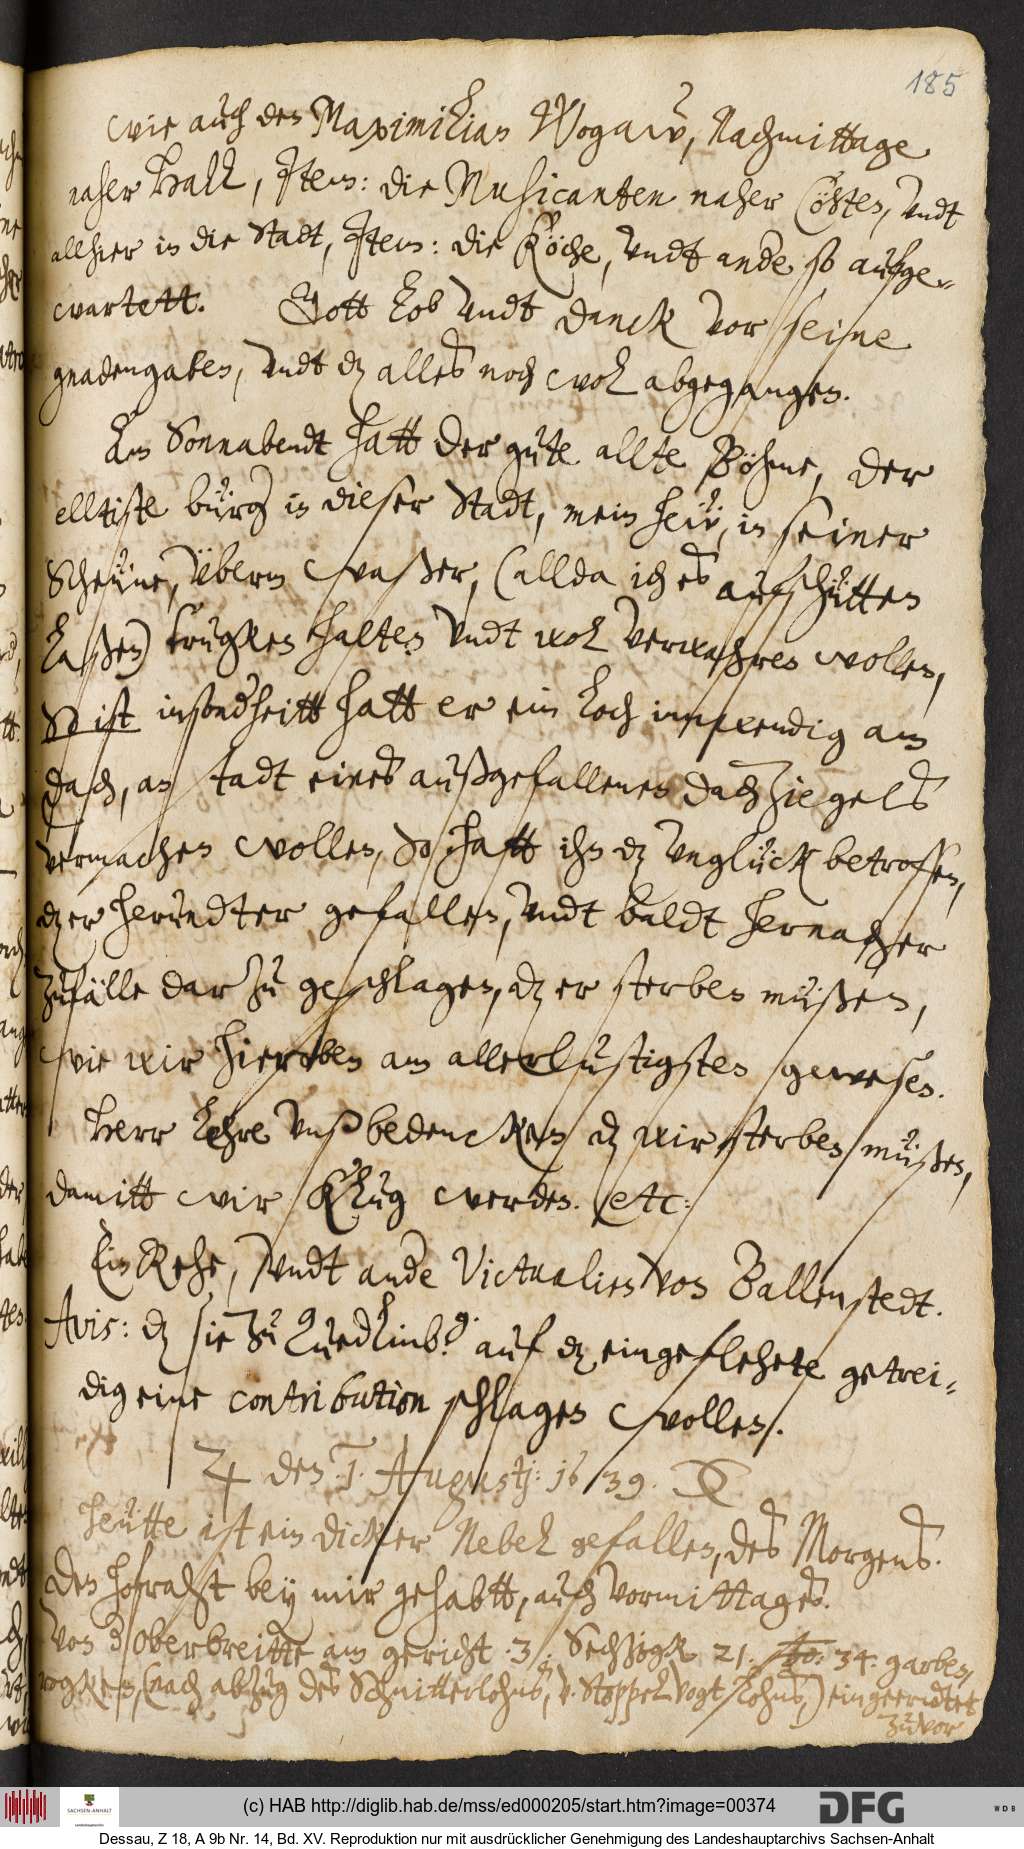 185
wie auch den Maximilian Wogaw, Nachmittage
naher Hall, Item: die Musicanten naher Cöhten, undt
allhier in die Stadt, Item: die Köche, undt ande so aufge-
wartett. Gott lob undt danck vor seine
gnadengaben, undt dz alles noch wol abgegangen.
Am Sonnabendt hatt der gute allte Böhme, der
elltiste bürg in dieser Stadt, mein heü, in seiner
Scheüne, übern waßer, (allda ich es aufschütten
laßen) trugken halten undt wol verwahren wollen,
So ist insondheitt hatt er ein loch inwendig am
dach, an stadt eines außgefallenen dachziegels
vermachen wollen, So hatt ihn dz unglück betroffen,
dz er herundter gefallen, undt baldt hernacher
zufälle darzu geschlagen, dz er sterben müßen,
wie wir hieroben am allerlustigsten gewesen.
Herr Lehre unß bedencken dz wir sterben müßen,
damitt wir klug werden. etc:
Ein Rehe, undt ande Victualien von Ballenstedt.
Avis: dz sie zu Quedlinb.g auf dz eingeflehete getrei-
dig eine contribution schlagen wollen.
♃ den: 1. Augustj: 1639.
Heütte ist ein dicker Nebel gefallen, des Morgens.
Den hofraht bey mir gehabtt, auch vormittages.
Von d Oberbreitte am gericht .3. Sechzigk 21. 34. garben,
rogken, (nach abzug des Schnitterlohns, v. Stoppel Vogt, Lohns,) eingeerndtet
zuvor
(c) HAB http://diglib.hab.de/mss/ed000205/start.htm?image=00374
SACHSEN-ANHALT
DFG
WDB
Dessau, Z 18, A 9b Nr. 14, Bd. XV. Reproduktion nur mit ausdrücklicher Genehmigung des Landeshauptarchivs Sachsen-Anhalt